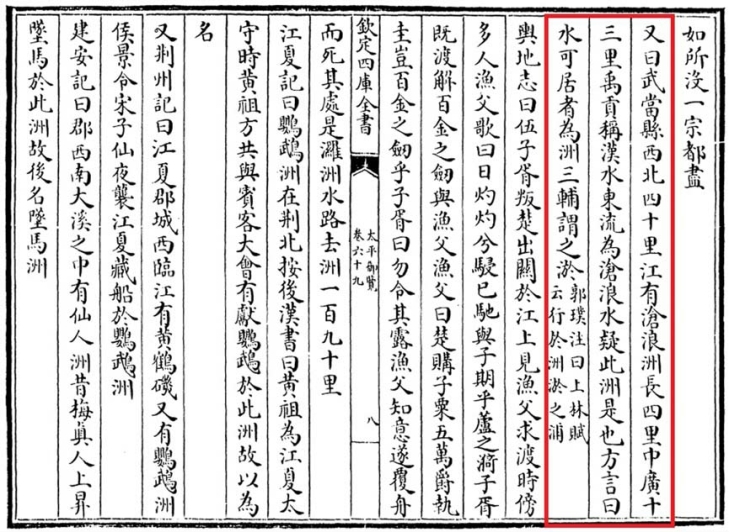 如所没一宗都盡
又曰武當縣西北四十里江有滄浪洲長四里中廣十
三里禹貢稱漢水東流為滄浪水疑此洲是也方言曰
水可居者為洲三輔謂之淤郭璞注曰上林賦云行於洲淤之浦
輿地志曰伍子胥叛楚出關於江上見漁父求渡時傍
多人漁父歌曰日灼灼兮騣已馳與子期乎蘆之漪子胥
既渡解百金之劒與漁父漁父曰楚購子粟五萬爵執
圭豈百金之劒乎子胥曰勿令其露漁父知意遂覆舟
而死其處是濯洲水路去洲一百九十里
欽定四庫全書
太平御覽
卷六十九
八
江夏記曰鸚鵡洲在荆北按後漢書曰黄祖為江夏太
守時黄祖方共與賓客大會有獻鸚鵡於此洲故以為
名
又荆州記曰江夏郡城西臨江有黄鶴磯又有鸚鵡洲
侯景令宋子仙夜襲江夏藏船於鸚鵡洲
建安記曰郡西南大溪之中有仙人洲昔梅真人上昇
墜馬於此洲故後名墜馬洲